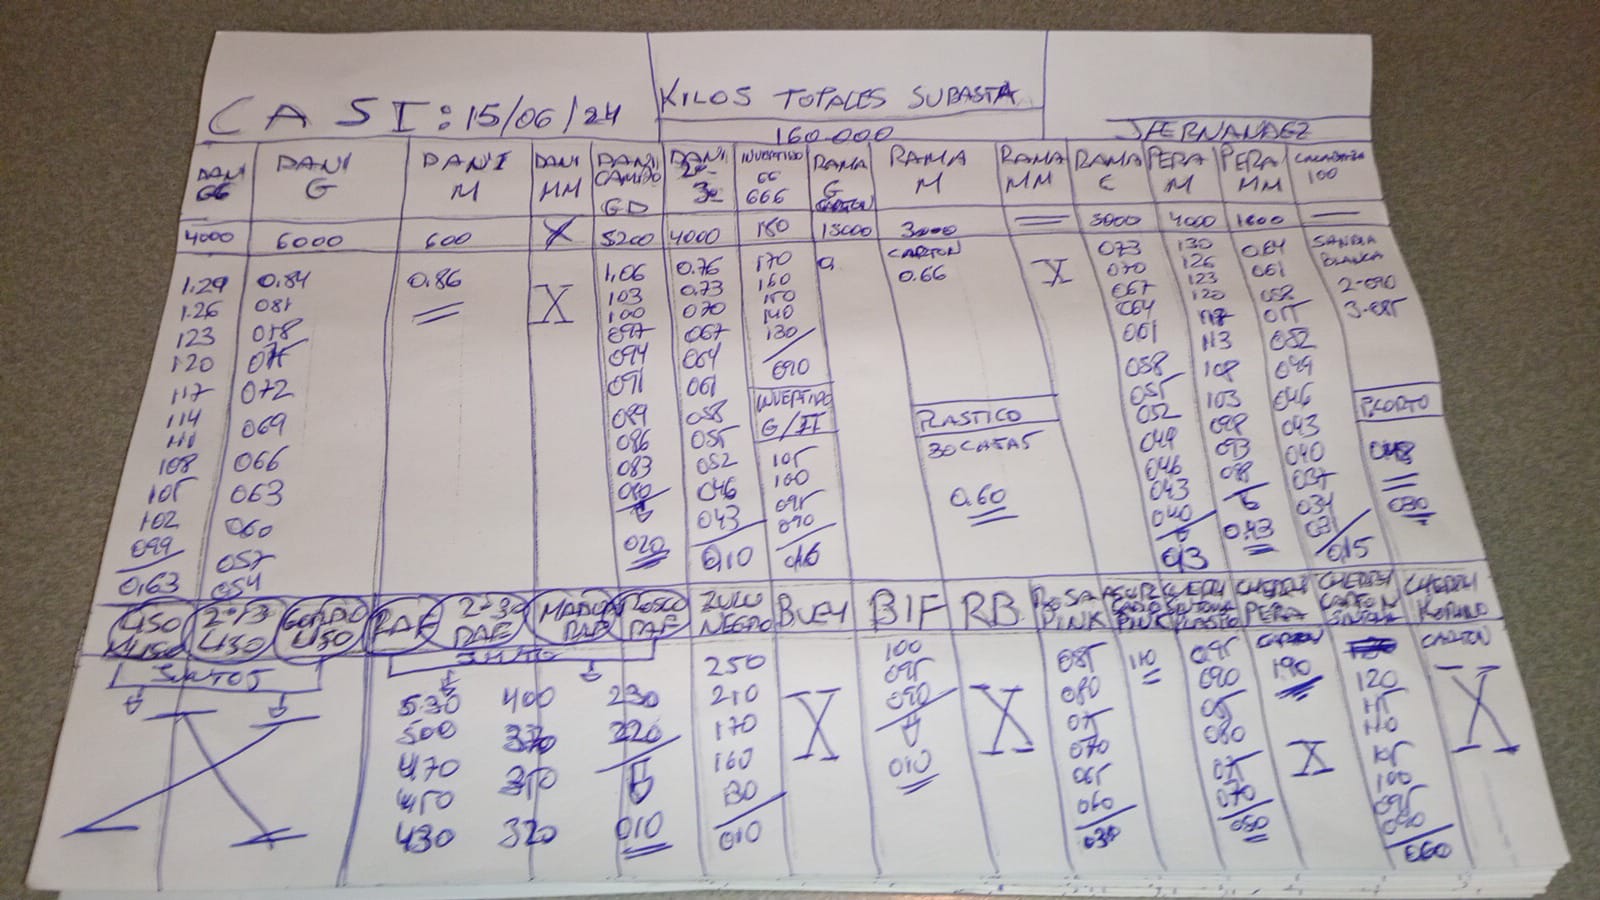 CASI: 15/06/24
KILOS TOTALES SUBASTA
160.000
JFERNANDEZ
DANI GG
DANI G
DANI M
DANI MM
DANI CANIO GD
DANI 2ª 3ª
INVERTIDO GG 666
RAMA G CARTON
RAMA M
RAMA MM
RAMA C
PERA M
PERA MM
100
4000 6000 600 X 5200 4000 180 15000 3000 5000 4000 1600
1.29
1.26
123
120
117
114
111
108
105
102
099
0,63
0.84
081
078
075
072
069
066
063
060
057
054
0.86
X
1.06
103
100
097
094
091
089
086
083
080
020
0.76
0.73
070
067
064
061
058
055
052
046
043
0,10
170
160
150
140
130
090
INVERTIDO
G/II
105
100
095
090
CARTON
0.66
PLASTICO
30 CAJAS
0.60
X
073
070
067
064
061
058
055
052
049
046
043
040
013
130
126
123
120
117
113
108
103
098
093
088
0.43
0.64
061
058
055
052
049
046
043
040
037
034
031
015
SANDIA
BLANCA
2-090
3-085
P.CORTO
048
030
450
2ª/3 450
GORDO 450
RAF
2ª 3ª RAF
MARCA RAF
ROSCO RAF
ZULU NEGRO
BUEY
BIF
RB
ROSA PINK
PINK
CHERRY PERA
CHERRY CARTON
CHERRY
CARTON
JUNTOS
JUNTO
5.30
500
470
450
430
400
370
350
320
230
220
010
250
210
170
160
130
010
X
100
095
090
010
X
085
080
075
070
065
060
030
110
095
090
085
080
075
070
050
CARTON
1.90
X
120
115
110
105
100
095
090
060
X